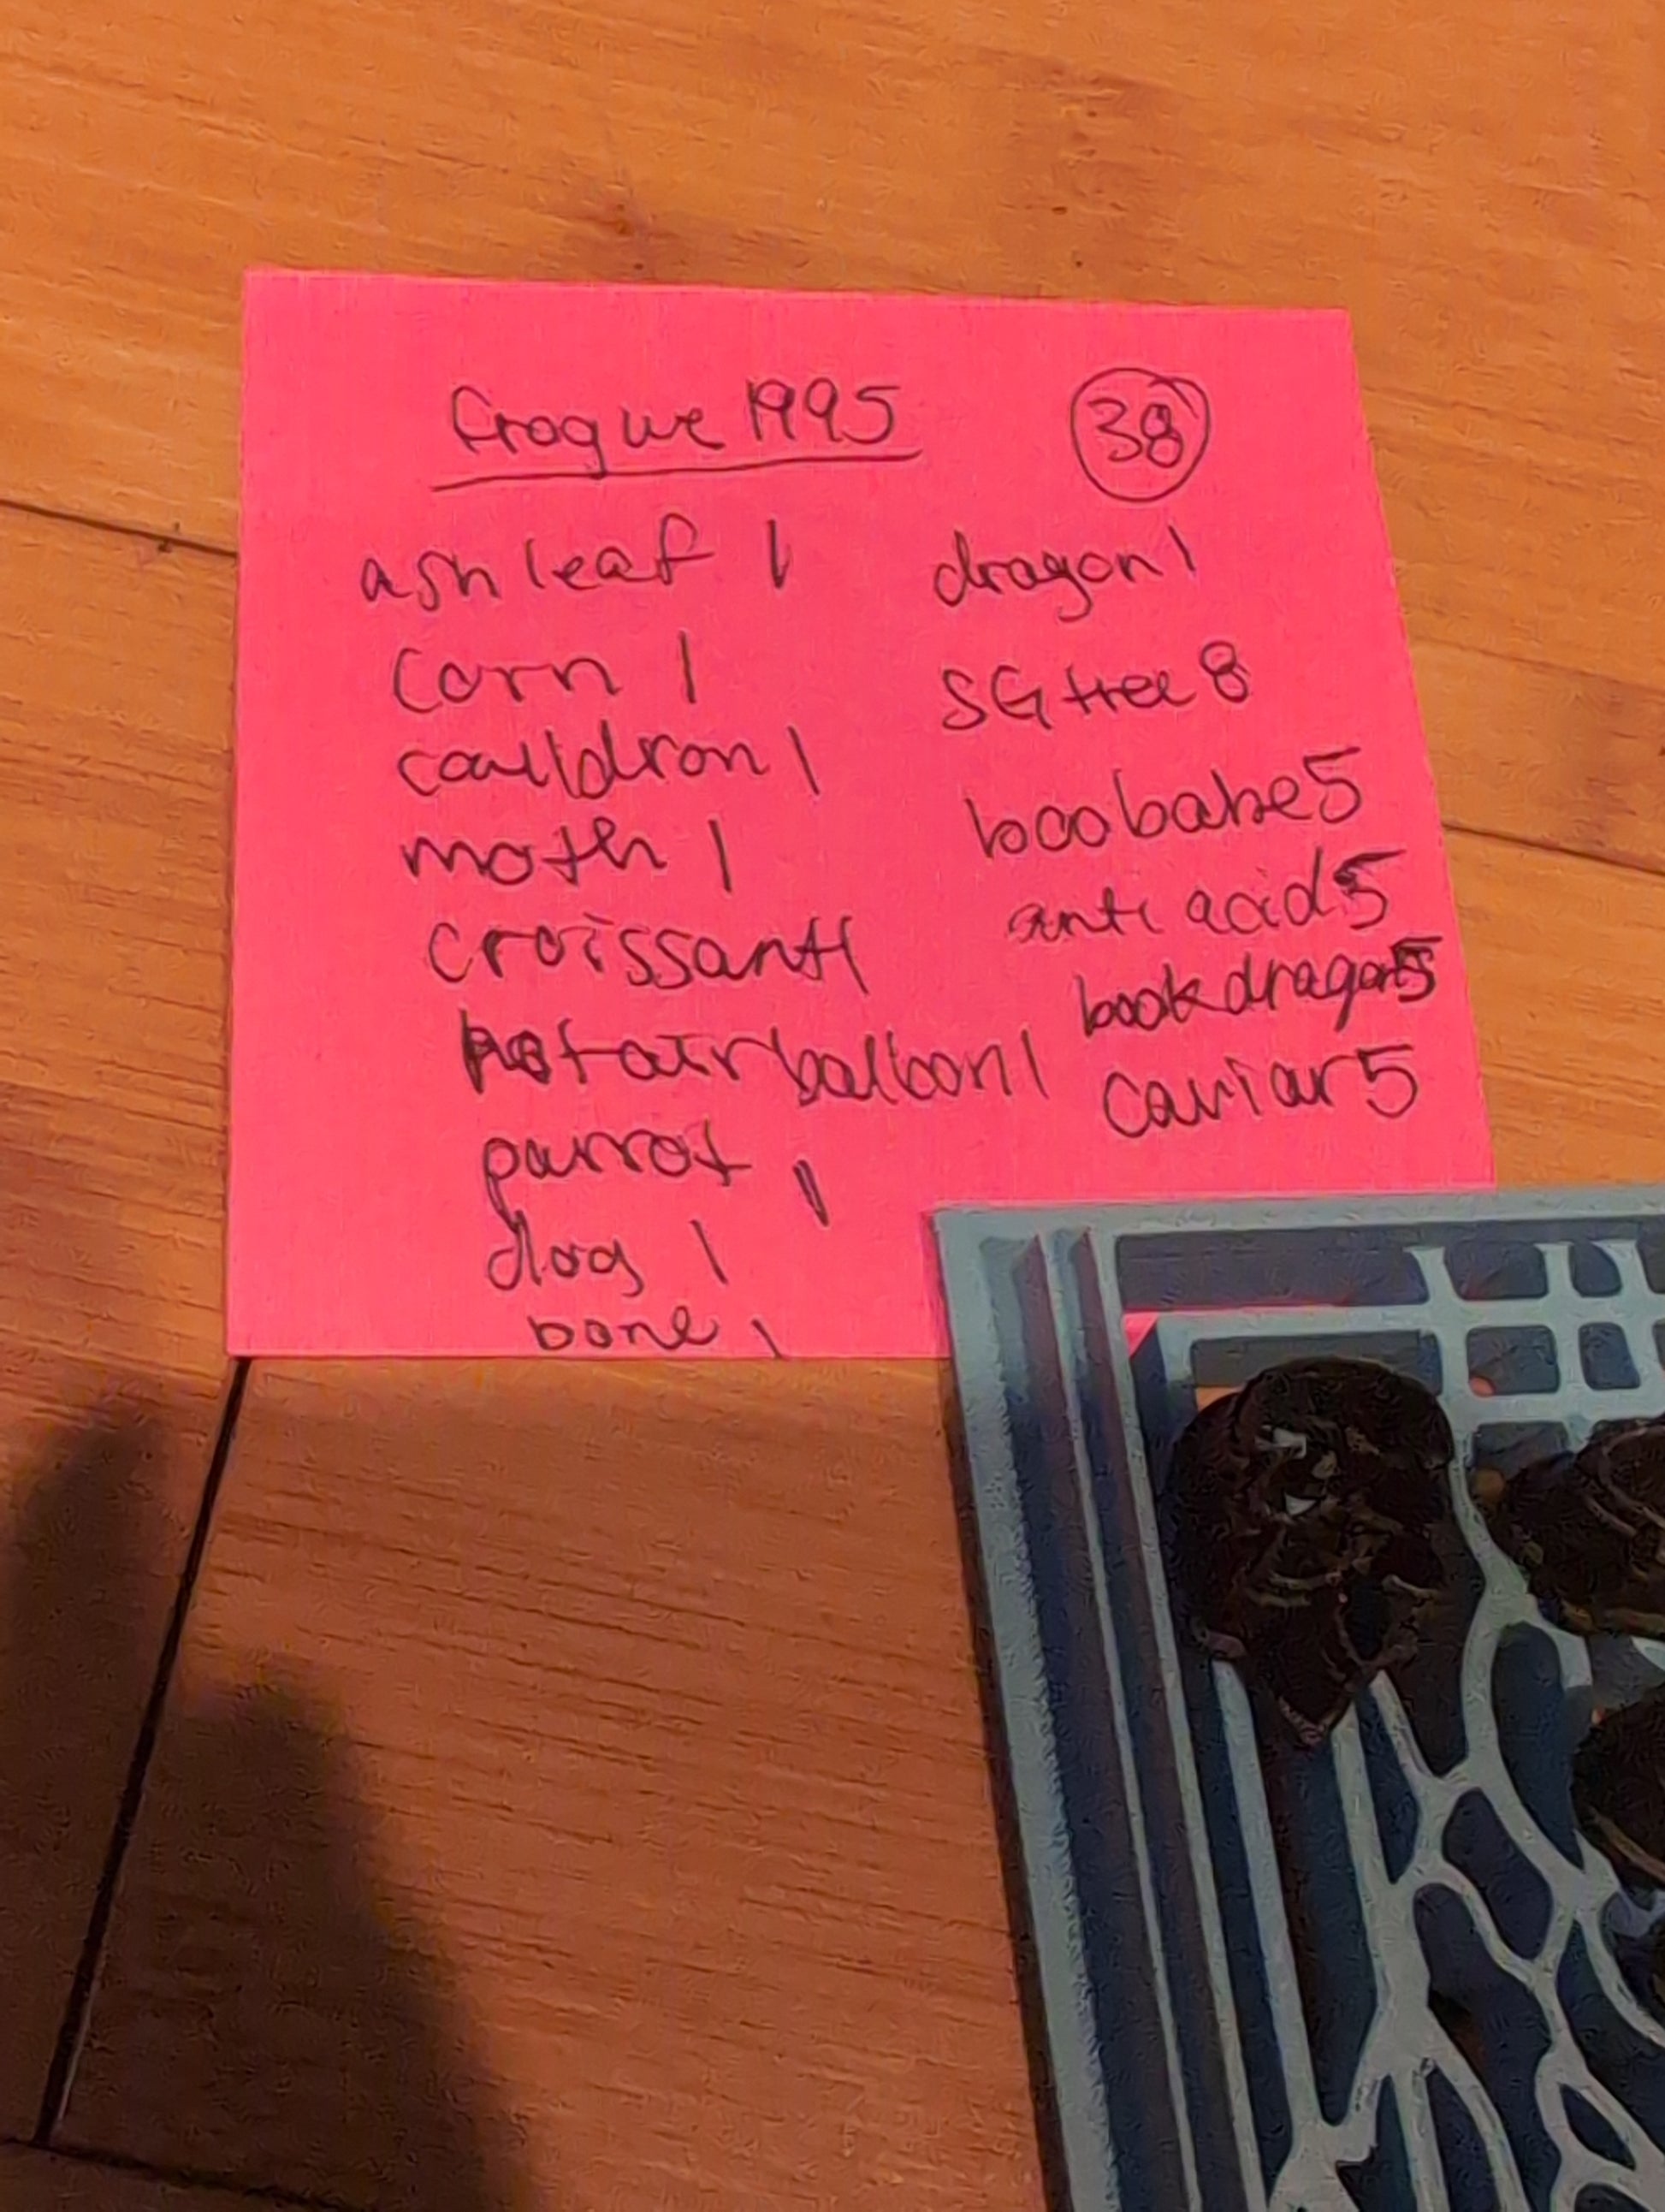 frogwe 1995
38
ash leaf 1
corn 1
caulldron 1
moth 1
croissant 1
hot air balloon 1
parrot 1
dog 1
bone 1
dragon 1
SG tree 8
boo babe 5
anti acid 5
book dragon 5
caviar 5